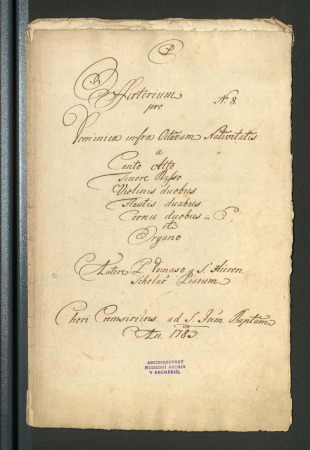 Offertorium
pro
N. 8.
Dominica infra Octavam Nativitatis
a
Canto Alto
Tenore Basso
Violinis duobus
Flautis duabus
Cornu duobus in
et
Organo
P. Tomaso a S.
Scholar Piarum
Chori Cremsiriens. ad S. Baptam
An 1783
ARCIBISKUPSKÝ
HUDEBNÍ ARCHIV
V KROMĚŘÍŽI.